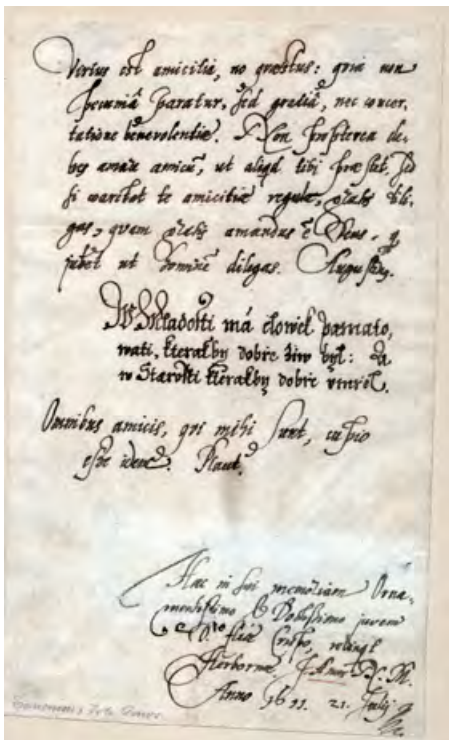 Virtus est amicitia, no quæstus: quia non
pecuniâ paratur, sed gratiâ, nec concer.
tatione benevolentiæ. Non propterea de.
bes amare amicū, ut aliqd tibi præstet, sed
si te amicitiæ regulæ, gratis dili.
gas, quam gratis amandus ē Deus, q
jubet ut diligas. Augustin9.
W Mladosti má clowěk pamato,
wati, kterakby dobře žiw byl: a
w Starosti kterakby dobře vmřel.
Omnibus amicis, qui mihi sunt, cupio
esse idem. Plaut.
Hac in sui memoriam Orna,
& Doctissimo juveni
Crispo, reliqt
Herbornæ J. Amos N. M.
Anno 1611. 21. Julij